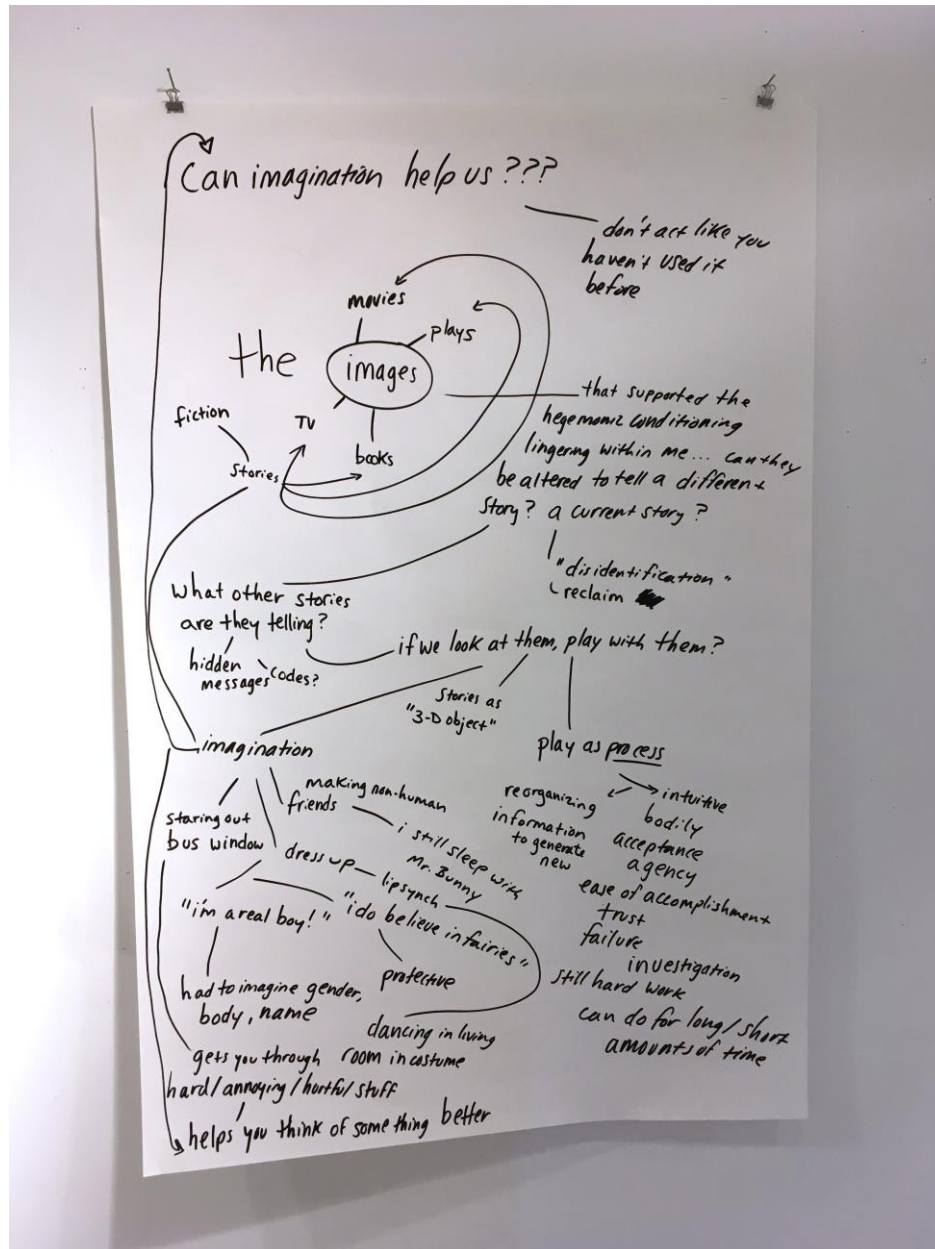 Can imagination help us ???
don't act like you
haven't used it
before
movies
plays
the
images
TV
books
fiction
Stories
that supported the
hegemonic conditioning
lingering within me... can they
be altered to tell a different
Story? a current story?
"disidentification"
reclaim
what other stories
are they telling?
hidden
messages
codes?
if we look at them, play with them?
Stories as
"3-D object"
play as process
imagination
staring out
bus window
making non-human
friends
i still sleep with
Mr. Bunny
dress up
lipsynch
"i'm a real boy!"
"i do believe in fairies"
protective
had to imagine gender,
body, name
dancing in living
room in costume
gets you through
hard/annoying/hurtful stuff
helps you think of something better
reorganizing
information
to generate
new
intuitive
bodily
acceptance
agency
ease of accomplishment
trust
failure
investigation
still hard work
can do for long/short
amounts of time